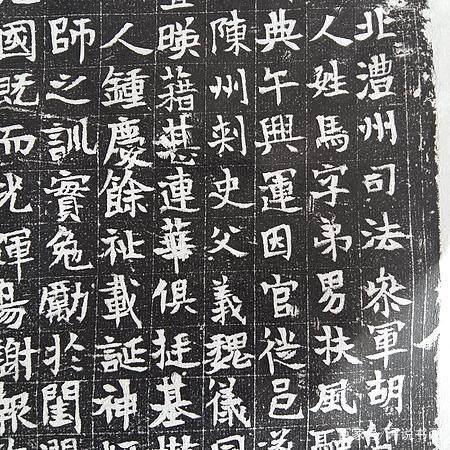 北澧州司法叅軍胡
人姓馬字弟男扶風融
典午興運因官徙邑遂
陳州刺史父義魏儀同
暎藉甚連華俱挺基
人鍾慶餘祉載誕神
師之訓實免勵於閨
國既而光渾揚謝報